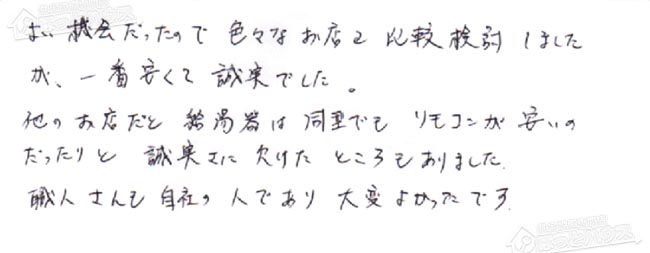 よい機会だったので色々なお店と比較検討しました
が、一番安くて誠実でした。
他のお店だと給湯器は同型でもリモコンが安いの
だったりと誠実さに欠けたところもありました。
職人さんも自社の人であり大変よかったです。